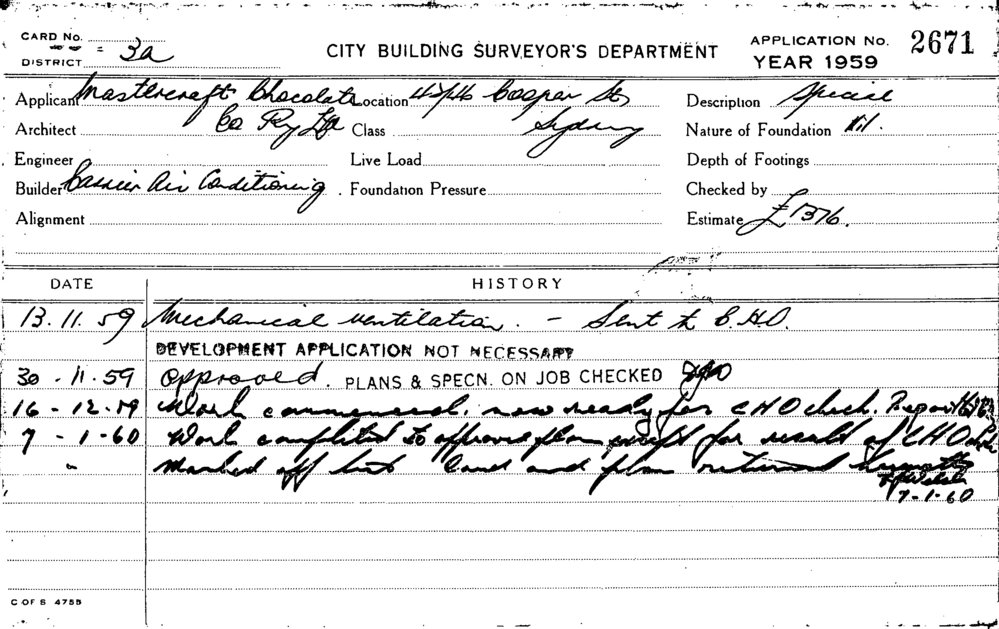 CARD No.
DISTRICT 3a
CITY BUILDING SURVEYOR'S DEPARTMENT
APPLICATION No. 2671
YEAR 1959
Applicant Mastercraft Chocolate Location 42/46 Cooper St Description Special
Architect Co Pty Ltd Class Sydney Nature of Foundation Nil.
Engineer Live Load Depth of Footings
Builder Air Conditioning. Foundation Pressure Checked by
Alignment Estimate £1376.
DATE HISTORY
13.11.59 Mechanical ventilation. - Sent to C.H.O.
DEVELOPMENT APPLICATION NOT NECESSARY
30-11-59 Approved. PLANS & SPECN. ON JOB CHECKED
16-12-59 Work commenced, now ready for CHO check. Report
7-1-60 Work completed to approved plan except for result of CHO
" Marked off list Card and plan returned herewith
7-1-60
C OF S 4755